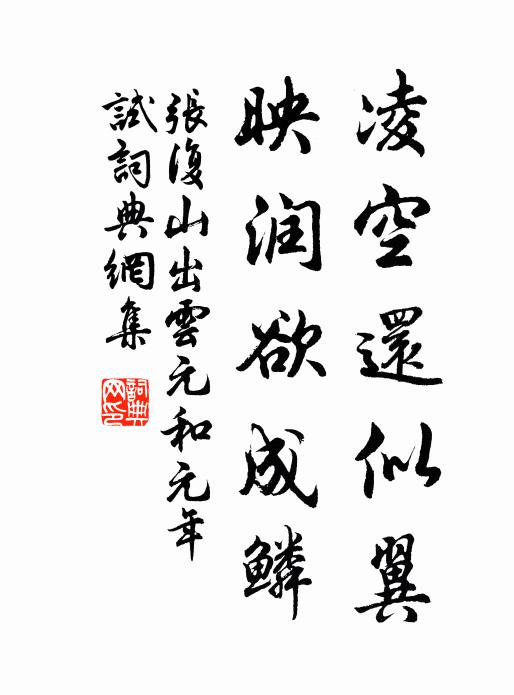 凌空還似翼
映润欲成鳞
張復山出雲元和元年
試詞典網集
詞典网印